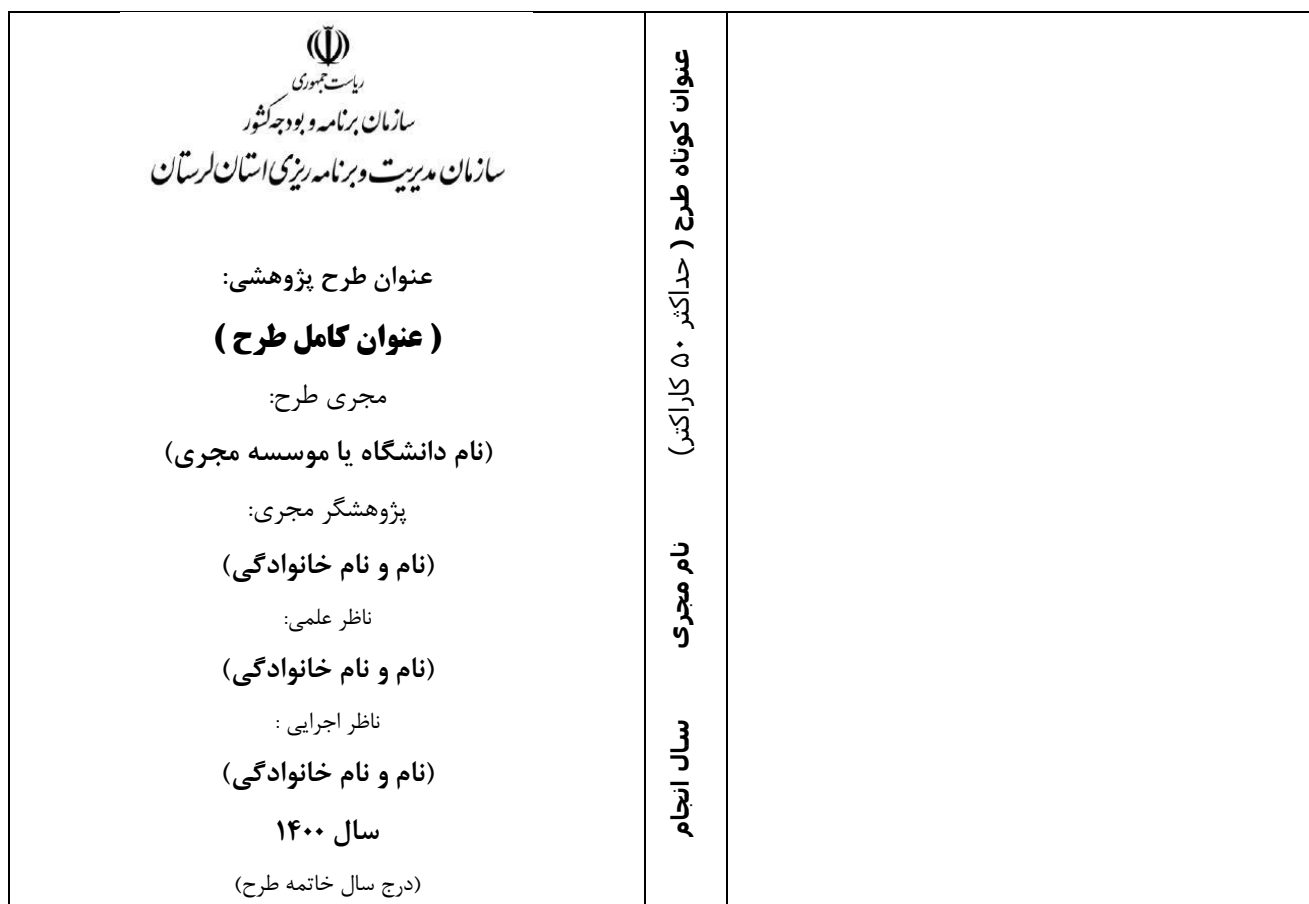 ریاست جمهوری
سازمان برنامه و بودجه کشور
سازمان مدیریت و برنامه ریزی استان لرستان
عنوان طرح پژوهشی:
( عنوان کامل طرح )
مجری طرح:
(نام دانشگاه یا موسسه مجری)
پژوهشگر مجری:
(نام و نام خانوادگی)
ناظر علمی:
(نام و نام خانوادگی)
ناظر اجرایی :
(نام و نام خانوادگی)
سال ۱۴۰۰
(درج سال خاتمه طرح)
عنوان کوتاه طرح ( حداکثر ۵۰ کاراکتر)
نام مجری
سال انجام